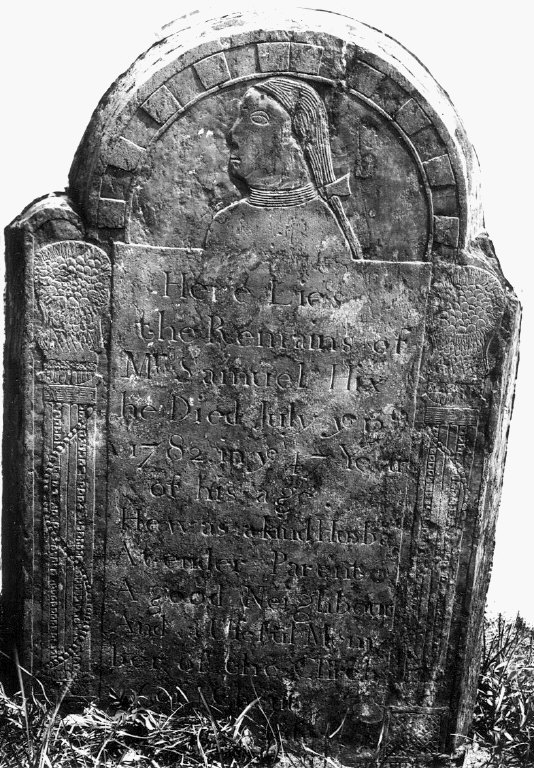 Here Lies
the Remains of
Mr. Samuel Hix
he Died July ye
1782 in ye Year
of his age
He was a kind Husba
A tender Parent
A good Neighbour
And Useful Mem
ber of the